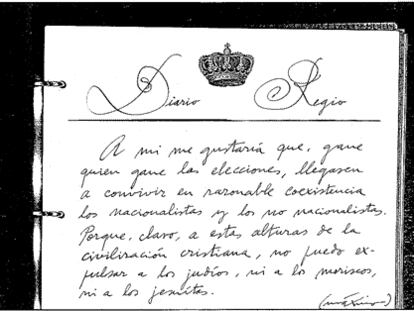 Diario Regio
A mi me gustaría que, gane
quien gane las elecciones, llegasen
a convivir en razonable coexistencia
los nacionalistas y los no nacionalistas.
Porque, claro, a estas alturas de la
civilización cristiana, no puedo ex-
pulsar a los judíos, ni a los moriscos,
ni a los jesuitas.
(máximo)